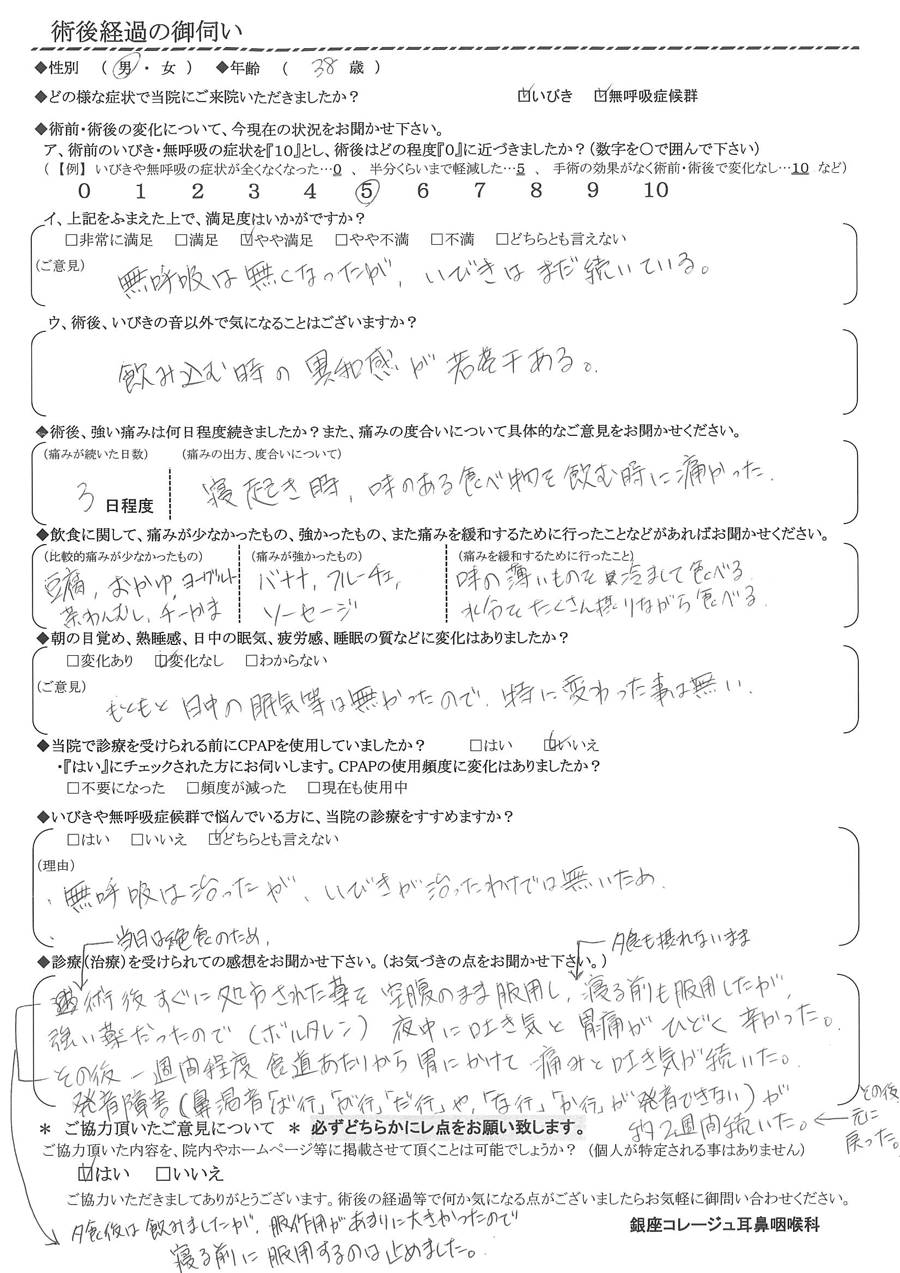 術後経過の御伺い
◆性別 （ 男 ・ 女 ） ◆年齢 （ 38 歳 ）
◆どの様な症状で当院にご来院いただきましたか？ ☑いびき ☑無呼吸症候群
◆術前・術後の変化について、今現在の状況をお聞かせ下さい。
ア、術前のいびき・無呼吸の症状を『10』とし、術後はどの程度『0』に近づきましたか？（数字を○で囲んで下さい）
（【例】 いびきや無呼吸の症状が全くなくなった…0 、 半分くらいまで軽減した…5 、 手術の効果がなく術前・術後で変化なし…10 など）
0 1 2 3 4 5 6 7 8 9 10
イ、上記をふまえた上で、満足度はいかがですか？
□非常に満足 □満足 ☑やや満足 □やや不満 □不満 □どちらとも言えない
（ご意見）
無呼吸は無くなったが、いびきはまだ続いている。
ウ、術後、いびきの音以外で気になることはございますか？
飲み込む時の異和感が若干ある。
◆術後、強い痛みは何日程度続きましたか？また、痛みの度合いについて具体的なご意見をお聞かせください。
（痛みが続いた日数） （痛みの出方、度合いについて）
3 日程度 寝起き時、味のある食べ物を飲む時に痛かった.
◆飲食に関して、痛みが少なかったもの、強かったもの、また痛みを緩和するために行ったことなどがあればお聞かせください。
（比較的痛みが少なかったもの） （痛みが強かったもの） （痛みを緩和するために行ったこと）
豆腐, おかゆ, ヨーグルト バナナ, フルーチェ, 味の薄いものを冷まして食べる.
茶わんむし, チーかま ソーセージ 水分をたくさん摂りながら食べる.
◆朝の目覚め、熟睡感、日中の眠気、疲労感、睡眠の質などに変化はありましたか？
□変化あり ☑変化なし □わからない
（ご意見）
もともと日中の眠気等は無かったので、特に変わった事は無い.
◆当院で診療を受けられる前にCPAPを使用していましたか？ □はい ☑いいえ
・『はい』にチェックされた方にお伺いします。CPAPの使用頻度に変化はありましたか？
□不要になった □頻度が減った □現在も使用中
◆いびきや無呼吸症候群で悩んでいる方に、当院の診療をすすめますか？
□はい □いいえ ☑どちらとも言えない
（理由）
・無呼吸は治ったが、いびきが治ったわけでは無いため.
当日は絶食のため, 夕食も摂れないまま
◆診療（治療）を受けられての感想をお聞かせ下さい。（お気づきの点をお聞かせ下さい。）
術後すぐに処方された薬を空腹のまま服用し, 寝る前も服用したが,
強い薬だったので（ボルタレン）夜中に吐き気と胃痛がひどく辛かった。
その後一週間程度食道あたりから胃にかけて痛みと吐き気が続いた。
発音障害（鼻濁音「ば行」「が行」「だ行」や,「な行」「か行」が発音できない）が
約2週間続いた。←その後元に戻った。
＊ ご協力頂いたご意見について ＊ 必ずどちらかにレ点をお願い致します。
ご協力頂いた内容を、院内やホームページ等に掲載させて頂くことは可能でしょうか？ （個人が特定される事はありません）
☑はい □いいえ
ご協力いただきましてありがとうございます。術後の経過等で何か気になる点がございましたらお気軽に御問い合わせください。
夕食後は飲みましたが, 服作用があまりに大きかったので
寝る前に服用するのは止めました。
銀座コレージュ耳鼻咽喉科